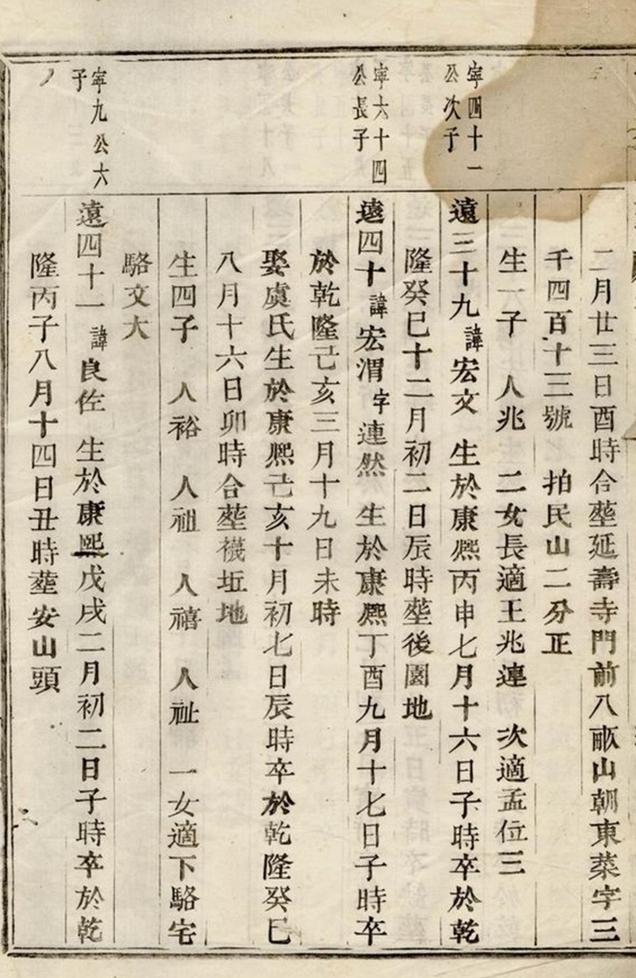 二月廿三日酉時合塟延壽寺門前八畝山朝東菜字三
千四百十三號七拍民山二分正
生一子 人兆 二女長適王兆連 次適孟位三
寜四十一
公次子
遠三十九 諱宏文 生於康熈丙申七月十六日子時卒於乾
隆癸巳十二月初二日辰時塟後園地
寜六十四
公長子
遠四十 諱宏渭 字連然 生於康熈丁酉九月十七日子時卒
於乾隆己亥三月十九日未時
娶虞氏生於康熈己亥十月初七日辰時卒於乾隆癸巳
八月十六日卯時合塟襪坵地
生四子 人裕 人祖 人禧 人祉 一女適下駱宅
駱文大
寜九公六
子
遠四十一 諱良佐 生於康熙戊戌二月初二日子時卒於乾
隆丙子八月十四日丑時塟安山頭